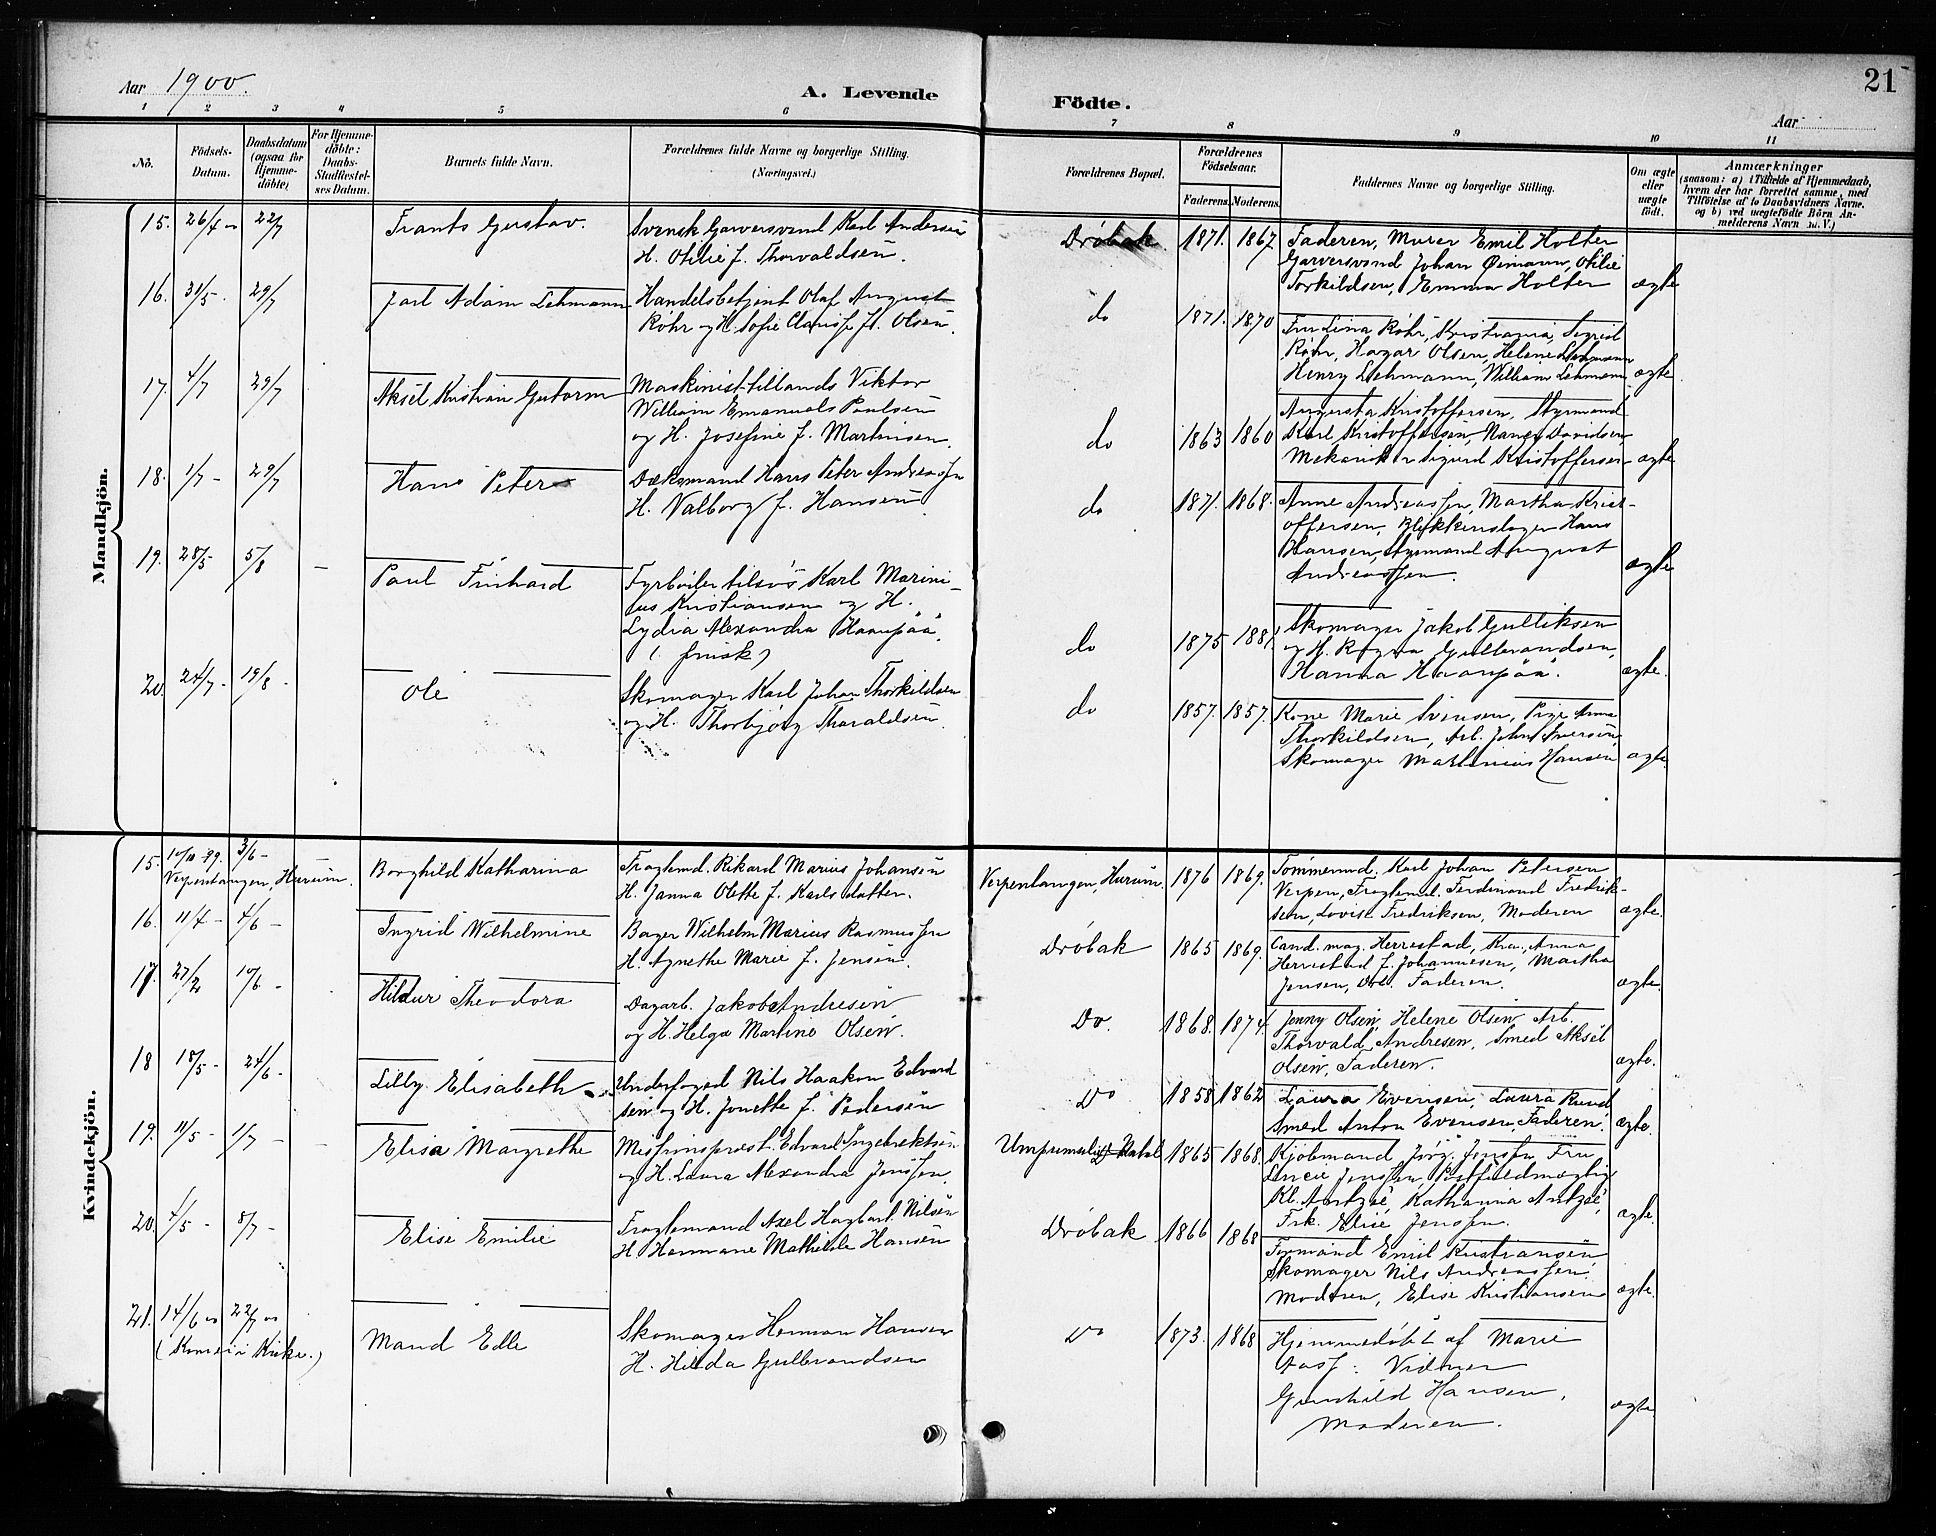 Aar 1900.
A. Levende Födte.
21
Aar
1 2 3 4 5 6 7 8 9 10 11
No.
Födsels-Datum.
Daabsdatum (ogsaa for Hjemmedöbte)
For Hjemmedöbte: Daabs-Stadfæstelses Datum.
Barnets fulde Navn.
Forældrenes fulde Navne og borgerlige Stilling.
(Næringsvei.)
Forældrenes Bopæl.
Forældrenes Födselsaar.
Faderens. Moderens.
Faddernes Navne og borgerlige Stilling.
Om ægte eller uægte födt.
Anmærkninger
(saasom: a) i Tilfælde af Hjemmedaab, hvem der har forrettet samme, med Tilföielse af to Daabsvidners Navne, og b) ved uægtefödte Börn Anmelderens Navn m.V.)
Mandkjön.
15. 26/4 22/7 Frants Gustav.
Svensk Garversvend Karl Andersen
H. Otilie f. Thorvaldsen.
Dröbak 1871. 1867.
Faderen, Murer Emil Holter
Garversvend Johan Öimann, Otilie
Torkildsen, Emma Holter ægte
16. 31/5 29/7 Jarl Adam Lehmann
Handelsbetjent Olaf August
Röhr og H. Sofie f. Olsen.
do 1871. 1870
Fru Lina Röhr, Kristiania, Sigrid
Röhr, Hagar Olsen, Helene Lehmann
Henry Lehmann, William Lehmann ægte
17. 4/7 29/7 Aksel Kristian Gutorm
Maskinist tillands Viktor
William Emanuels Paulsen
og H. Josefine f. Martinsen.
do 1863 1860
Augusta Kristoffersen, Styrmand
Karl Kristoffersen, Nancy Davidsen,
Mekaniker Sigurd Kristoffersen ægte
18. 1/7 29/7 Hans Peter
Dæksmand Hans Peter Andreassen
H. Valborg f. Hansen
do 1871. 1868.
Anne Andreassen, Martha Krist-
offersen, Blikkenslager Hans
Hansen, Styrmand August
Andreassen. ægte
19. 28/5 5/8 Paul Finhard
Fyrböder tilsös Karl Marini-
us Kristiansen og H.
Lydia Alexandra Haanpää.
(finsk)
do 1875 1881
Skomager Jakob Gulliksen
og H. Ragna Gulbrandsen,
Hanna Haanpää. ægte.
20. 24/7 19/8 Ole
Skomager Karl Johan Thorkildsen
og H. Thorbjörg Tharaldsen
do 1857. 1857.
Kone Marie Svensen, Pige Anna
Thorkildsen, Arb. Johan Iversen,
Skomager Martinius Hansen ægte.
Kvindekjön.
15. 10/10 99. 3/6 Borghild Katharina
Verpentangen, Hurum.
Fragtemd. Rikard Marius Johansen
H. Janna Olette f. Karlsdatter.
Verpentangen Hurum. 1876 1869.
Tömmermd. Karl Johan Petersen
Verpen, Fragtemd. Ferdinand Fredrik-
sen, Lovise Fredriksen, Moderen ægte.
16. 11/4 4/6 Ingrid Wilhelmine
Bager Wilhelm Marius Rasmussen
H. Agnethe Marie f. Jensen.
Dröbak 1865 1869.
Cand. mag. Herrestad, Kra. Anna
Herrestad f. Johannesen, Martha
Jensen, Faderen. ægte.
17. 27/2 10/6 Hildur Theodora
Dagarb. Jakob Andresen
og H. Helga Martine Olsen.
Do. 1868. 1874.
Jenny Olsen, Helene Olsen, Arb.
Thorvald Andresen, Smed Aksel
Olsen, Faderen. ægte.
18 18/5 24/6 Lilly Elisabeth
Underfoged Nils Haakon Edvard
sen og H. Jonette f. Pedersen
Do 1858 1862
Laura Evensen, Laura Rund
Smed Anton Evensen, Faderen. ægte.
19. 11/5 1/7 Elisa Margrethe
Missionsprest. Edvard Ingebrektsen
og H. Laura Alexandra Jenssen.
Natal 1865 1868.
Kjöbmand Jörg. Jenssen, Fru
Lucie Jenssen, Postfuldmægtig
Kl. Antzée, Katharina Antzée,
Frk. Elise Jenssen. ægte.
20 4/5 8/7 Elise Emilie
Fragtemand Axel Hagbart Nilsen
H. Hermane Mathilde Hansen
Dröbak 1866 1868
Formand Emil Kristiansen
Skomager Nils Andreassen
Moderen, Elise Kristiansen ægte.
21. 14/6 22/7 Maud Edle
(Kom ei i Kirke.)
Skomager Herman Hansen
H. Hilda Gulbrandsen
Do 1873. 1868
Hjemmedöbt af Marie
Aas. Vidner
Gunhild Hansen,
Moderen. ægte